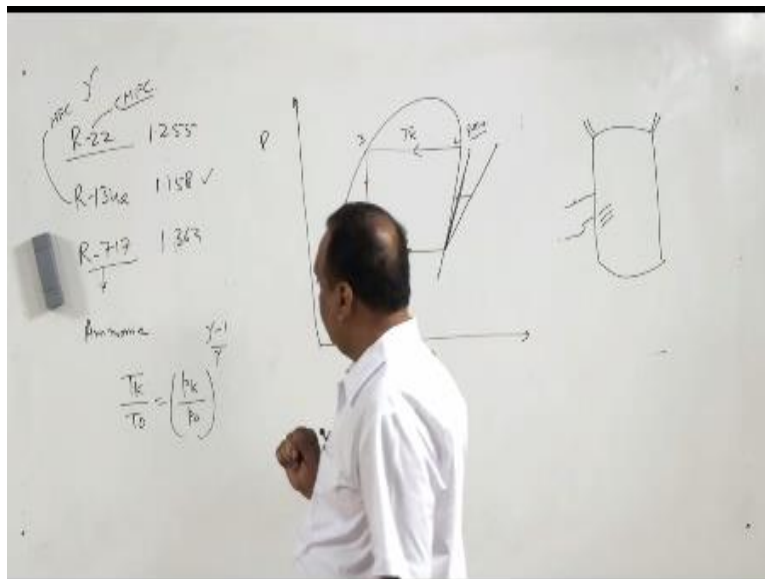 γ
HFC
(HFC
R-22 1.255
R-134a 1.158 ✓
R-717 1.363
Ammonia
Tk/T0 = (Pk/P0)^(γ-1/γ)
P
3
Tk